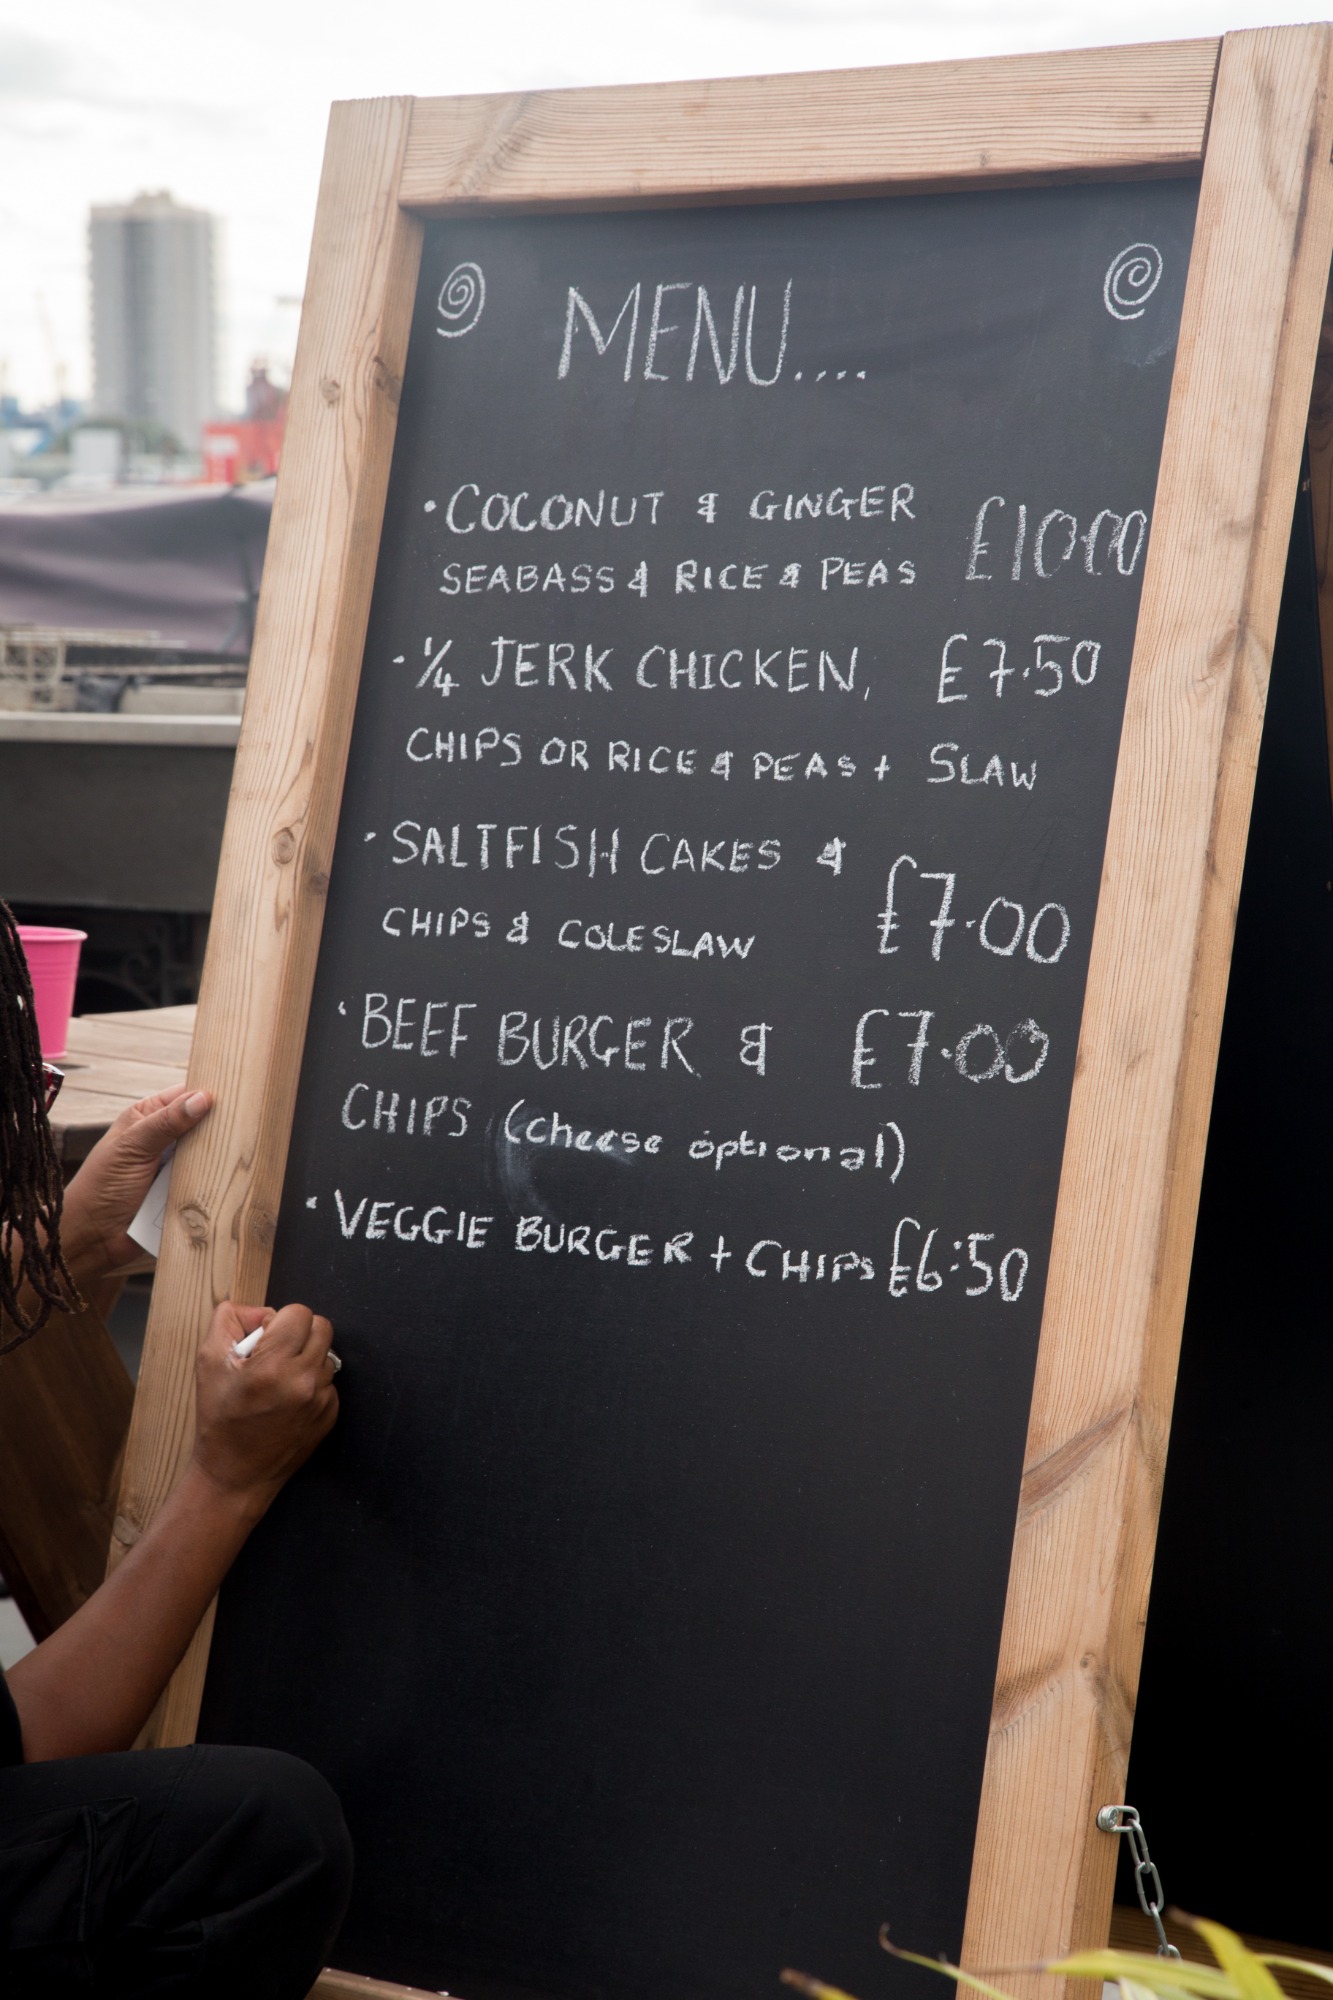 MENU....
• COCONUT & GINGER £10.00
SEABASS & RICE & PEAS
• 1/4 JERK CHICKEN, £7.50
CHIPS OR RICE & PEAS + SLAW
• SALTFISH CAKES & £7.00
CHIPS & COLESLAW
• BEEF BURGER & £7.00
CHIPS (cheese optional)
• VEGGIE BURGER + CHIPS £6:50